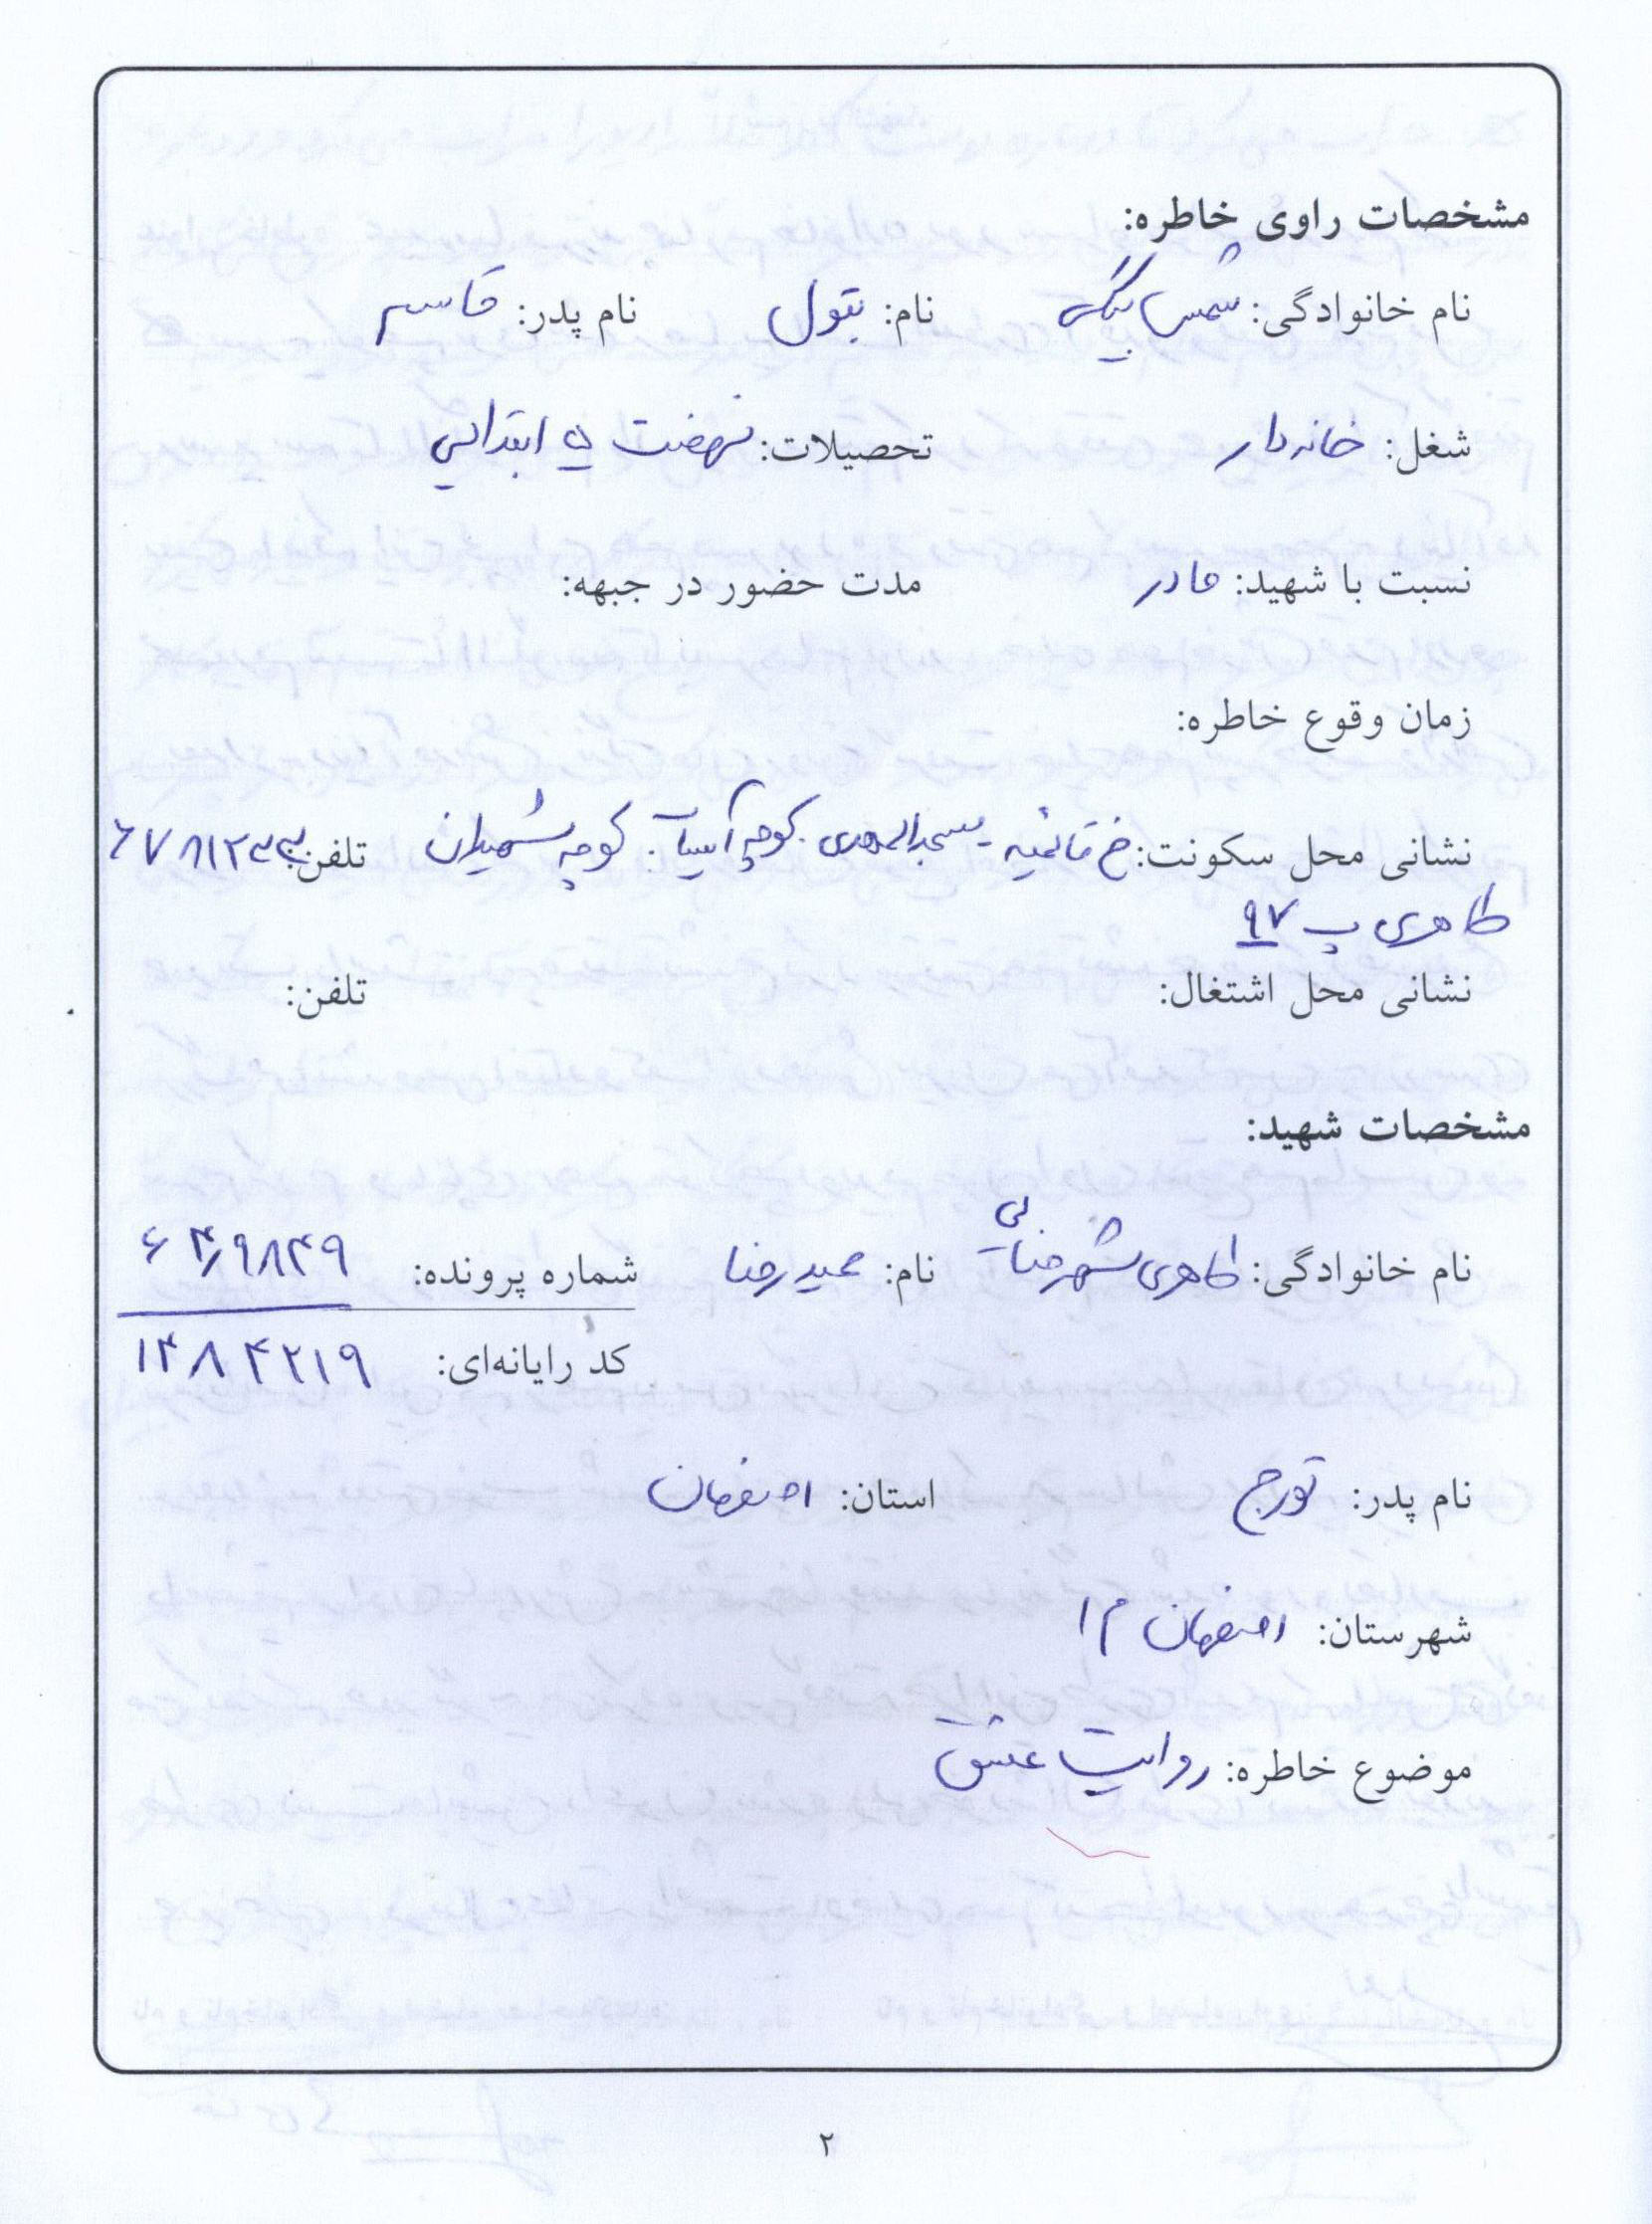 مشخصات راوی خاطره:
نام خانوادگی: شمس بیگی نام: بتول نام پدر: قاسم
شغل: خانه‌دار تحصیلات: نهضت ۵ ابتدایی
نسبت با شهید: مادر مدت حضور در جبهه:
زمان وقوع خاطره:
نشانی محل سکونت: خ قائمیه مسجد المهدی. کوچه آسیاب. کوچه شهیدان تلفن:
طاهری پ ۹۷
نشانی محل اشتغال: تلفن:
مشخصات شهید:
نام خانوادگی: طاهری شهرضایی نام: حمیدرضا شماره پرونده:
کد رایانه‌ای: ۱۳۸۴۲۱۹
نام پدر: تورج استان: اصفهان
شهرستان: اصفهان م ۱
موضوع خاطره: روایت عشق
۲